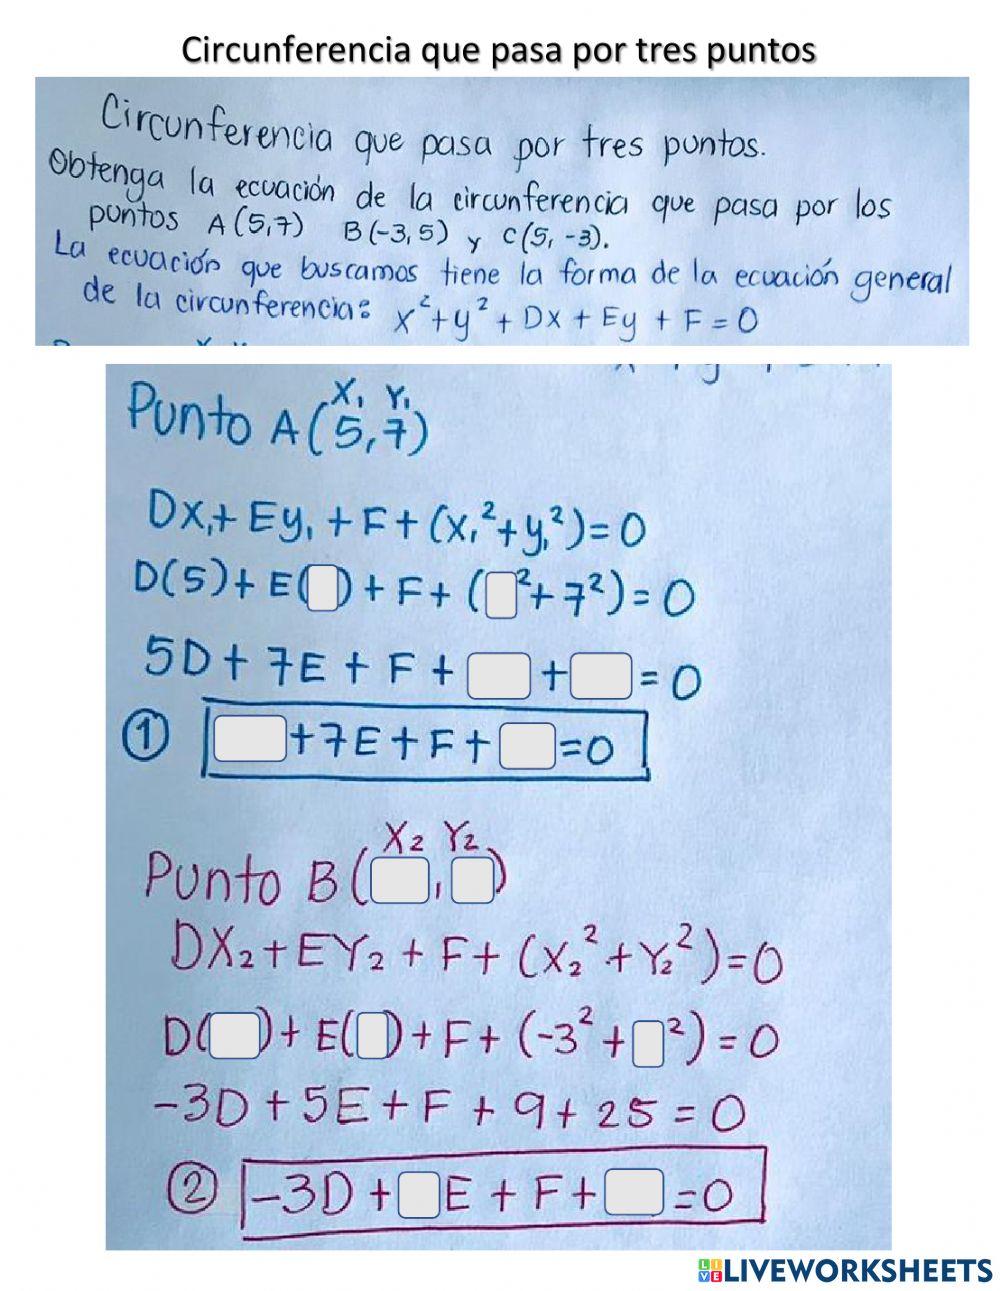 Circunferencia que pasa por tres puntos
Circunferencia que pasa por tres puntos.
Obtenga la ecuación de la circunferencia que pasa por los
puntos A(5,7) B(-3,5) y C(5,-3).
La ecuación que buscamos tiene la forma de la ecuación general
de la circunferencia: x²+y²+Dx+Ey+F=0
X₁ Y₁
Punto A(5,7)
Dx₁+Ey₁+F+(x₁²+y₁²)=0
D(5)+E( )+F+( ²+7²)=0
5D+7E+F+ + =0
① +7E+F+ =0
X₂ Y₂
Punto B( , )
DX₂+EY₂+F+(X₂²+Y₂²)=0
D( )+E( )+F+(-3²+ ²)=0
-3D+5E+F+9+25=0
② -3D+ E+F+ =0
LIVEWORKSHEETS